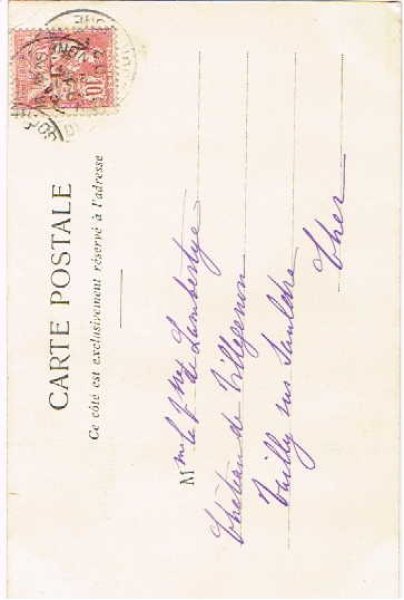 CARTE POSTALE
Ce côté est exclusivement réservé à l'adresse
Mme la Vtesse de Lambertye
Château de Villegenon
Vailly sur Sauldre
Cher
10